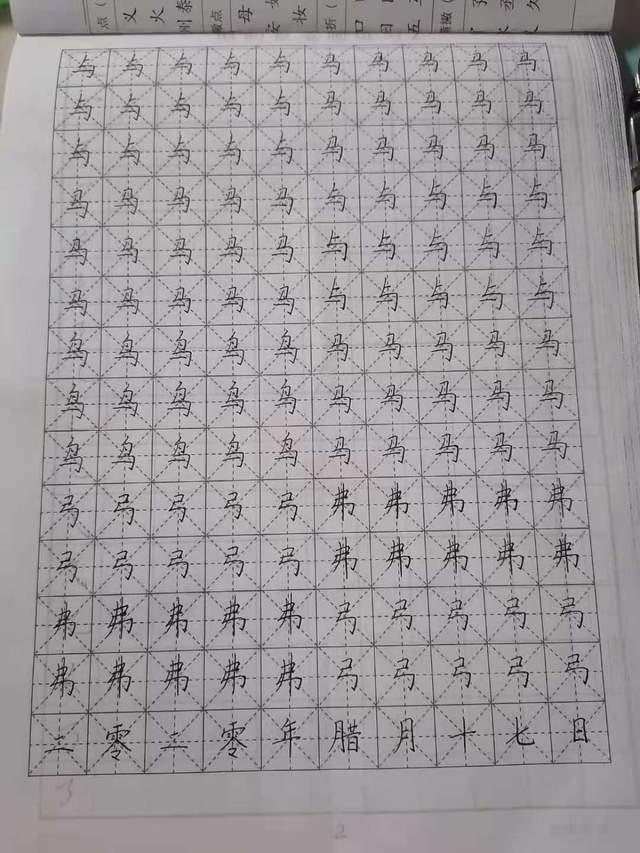 点 义 火 州 泰 点 母 安 妆 折 口 五
与 与 与 与 与 马 马 马 马 马
与 与 与 与 与 马 马 马 马 马
与 与 与 与 与 马 马 马 马 马
马 马 马 马 马 与 与 与 与 与
马 马 马 马 马 与 与 与 与 与
马 马 马 马 马 与 与 与 与 与
鸟 鸟 鸟 鸟 鸟 马 马 马 马 马
鸟 鸟 鸟 鸟 鸟 马 马 马 马 马
鸟 鸟 鸟 鸟 鸟 马 马 马 马 马
弓 弓 弓 弓 弓 弗 弗 弗 弗 弗
弓 弓 弓 弓 弓 弗 弗 弗 弗 弗
弗 弗 弗 弗 弗 弓 弓 弓 弓 弓
弗 弗 弗 弗 弗 弓 弓 弓 弓 弓
二 零 二 零 年 腊 月 十 七 日
2